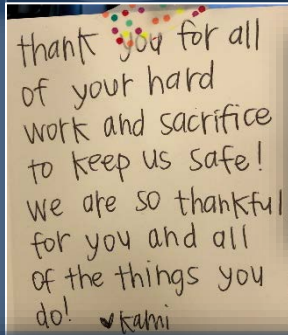 thank you for all
of your hard
work and sacrifice
to keep us safe!
we are so thankful
for you and all
of the things you
do! ♥kami